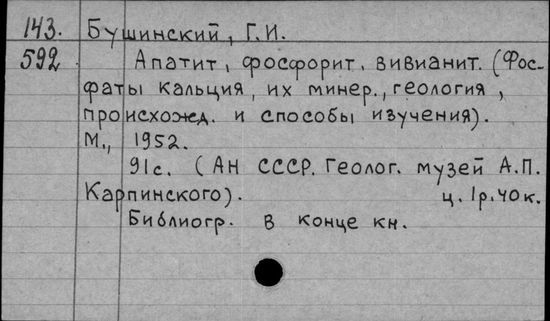 143. Бушинский, Г.И.
592 Апатит, фосфорит, вивианит. (Фос-
фаты кальция, их минер., геология,
происхожд. и способы изучения).
М., 1952.
91с. (АН СССР. Геолог. музей А.П.
Карпинского). ц. 1р.40к.
Библиогр. в конце кн.